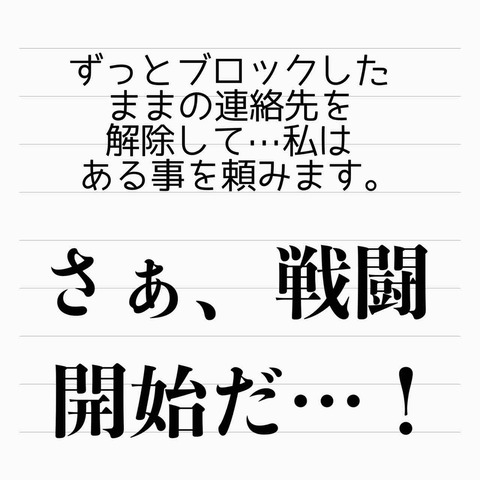 ずっとブロックした
ままの連絡先を
解除して…私は
ある事を頼みます。
さぁ、戦闘
開始だ…！